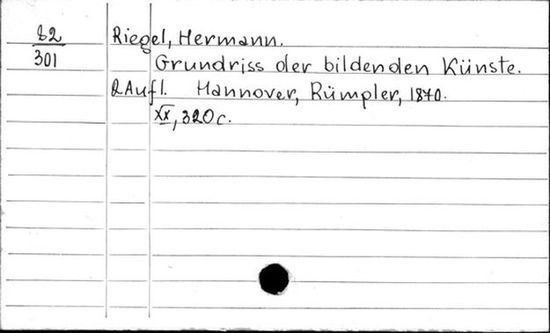 82 Riegel, Hermann.
301 Grundriss der bildenden Künste.
2 Aufl. Hannover, Rümpler, 1870.
XX, 320 c.